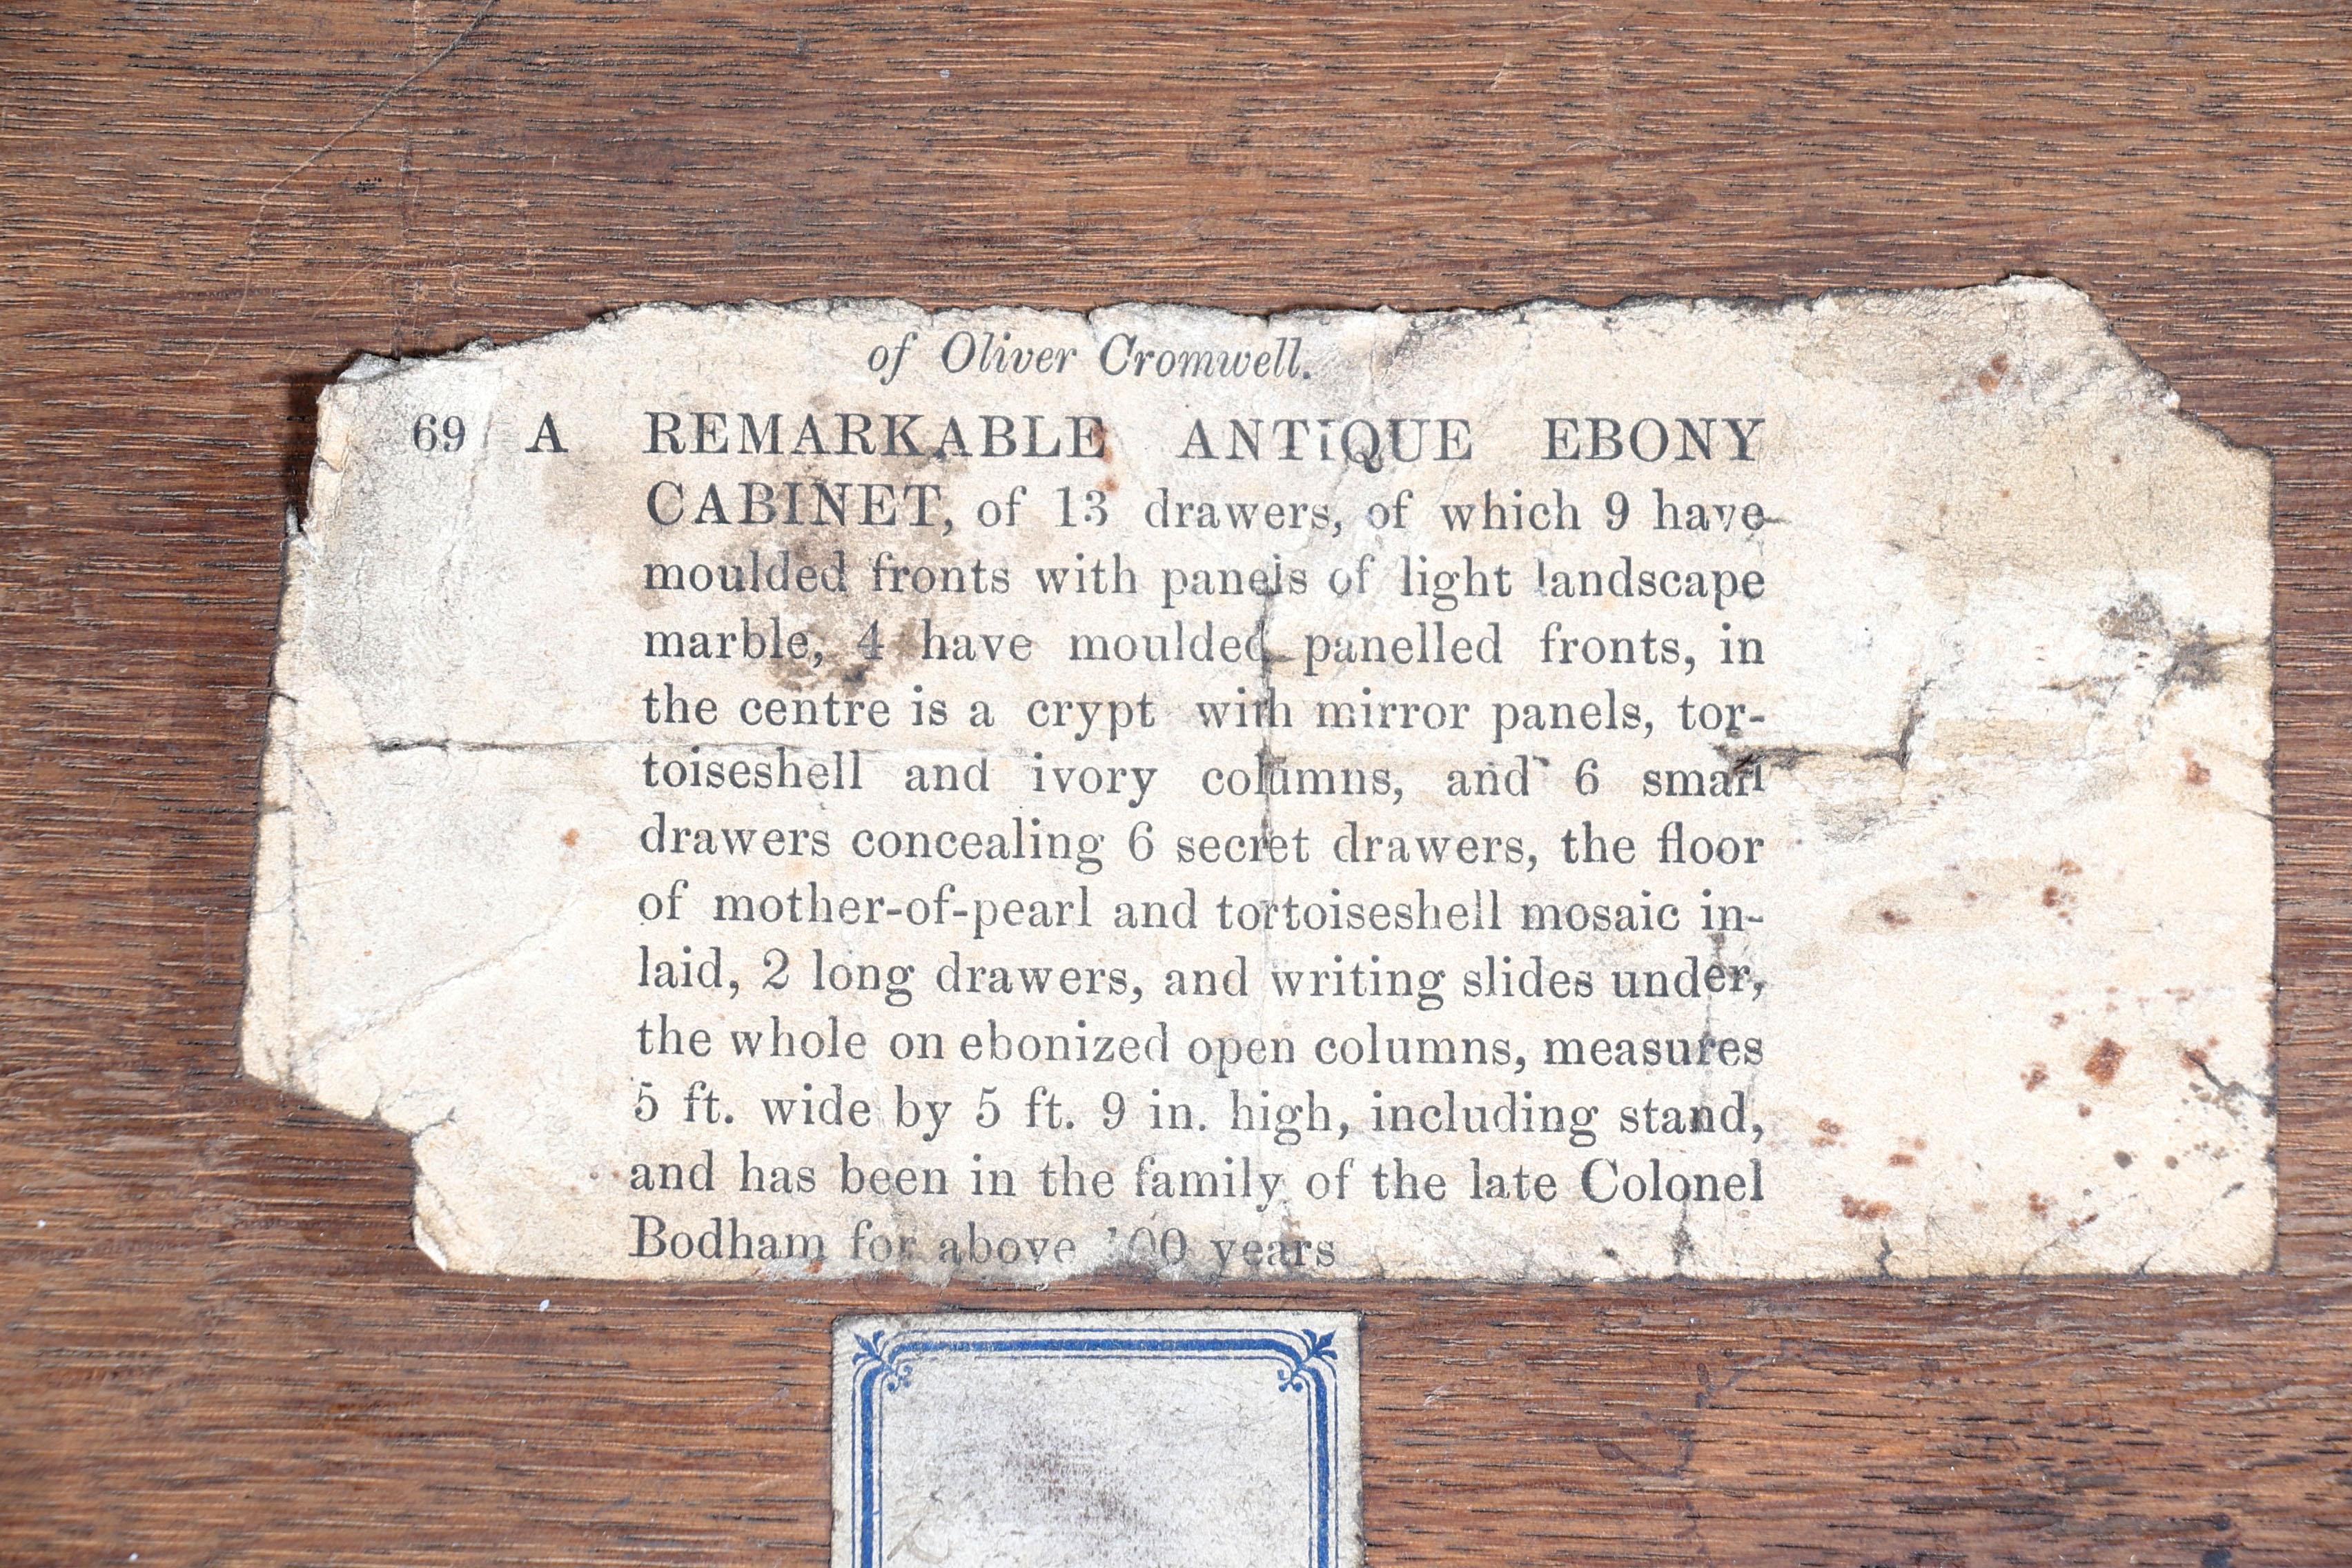 of Oliver Cromwell.
69 A REMARKABLE ANTIQUE EBONY
CABINET, of 13 drawers, of which 9 have
moulded fronts with panels of light landscape
marble, 4 have moulded panelled fronts, in
the centre is a crypt with mirror panels, tor-
toiseshell and ivory columns, and 6 small
drawers concealing 6 secret drawers, the floor
of mother-of-pearl and tortoiseshell mosaic in-
laid, 2 long drawers, and writing slides under,
the whole on ebonized open columns, measures
5 ft. wide by 5 ft. 9 in. high, including stand,
and has been in the family of the late Colonel
Bodham for above years